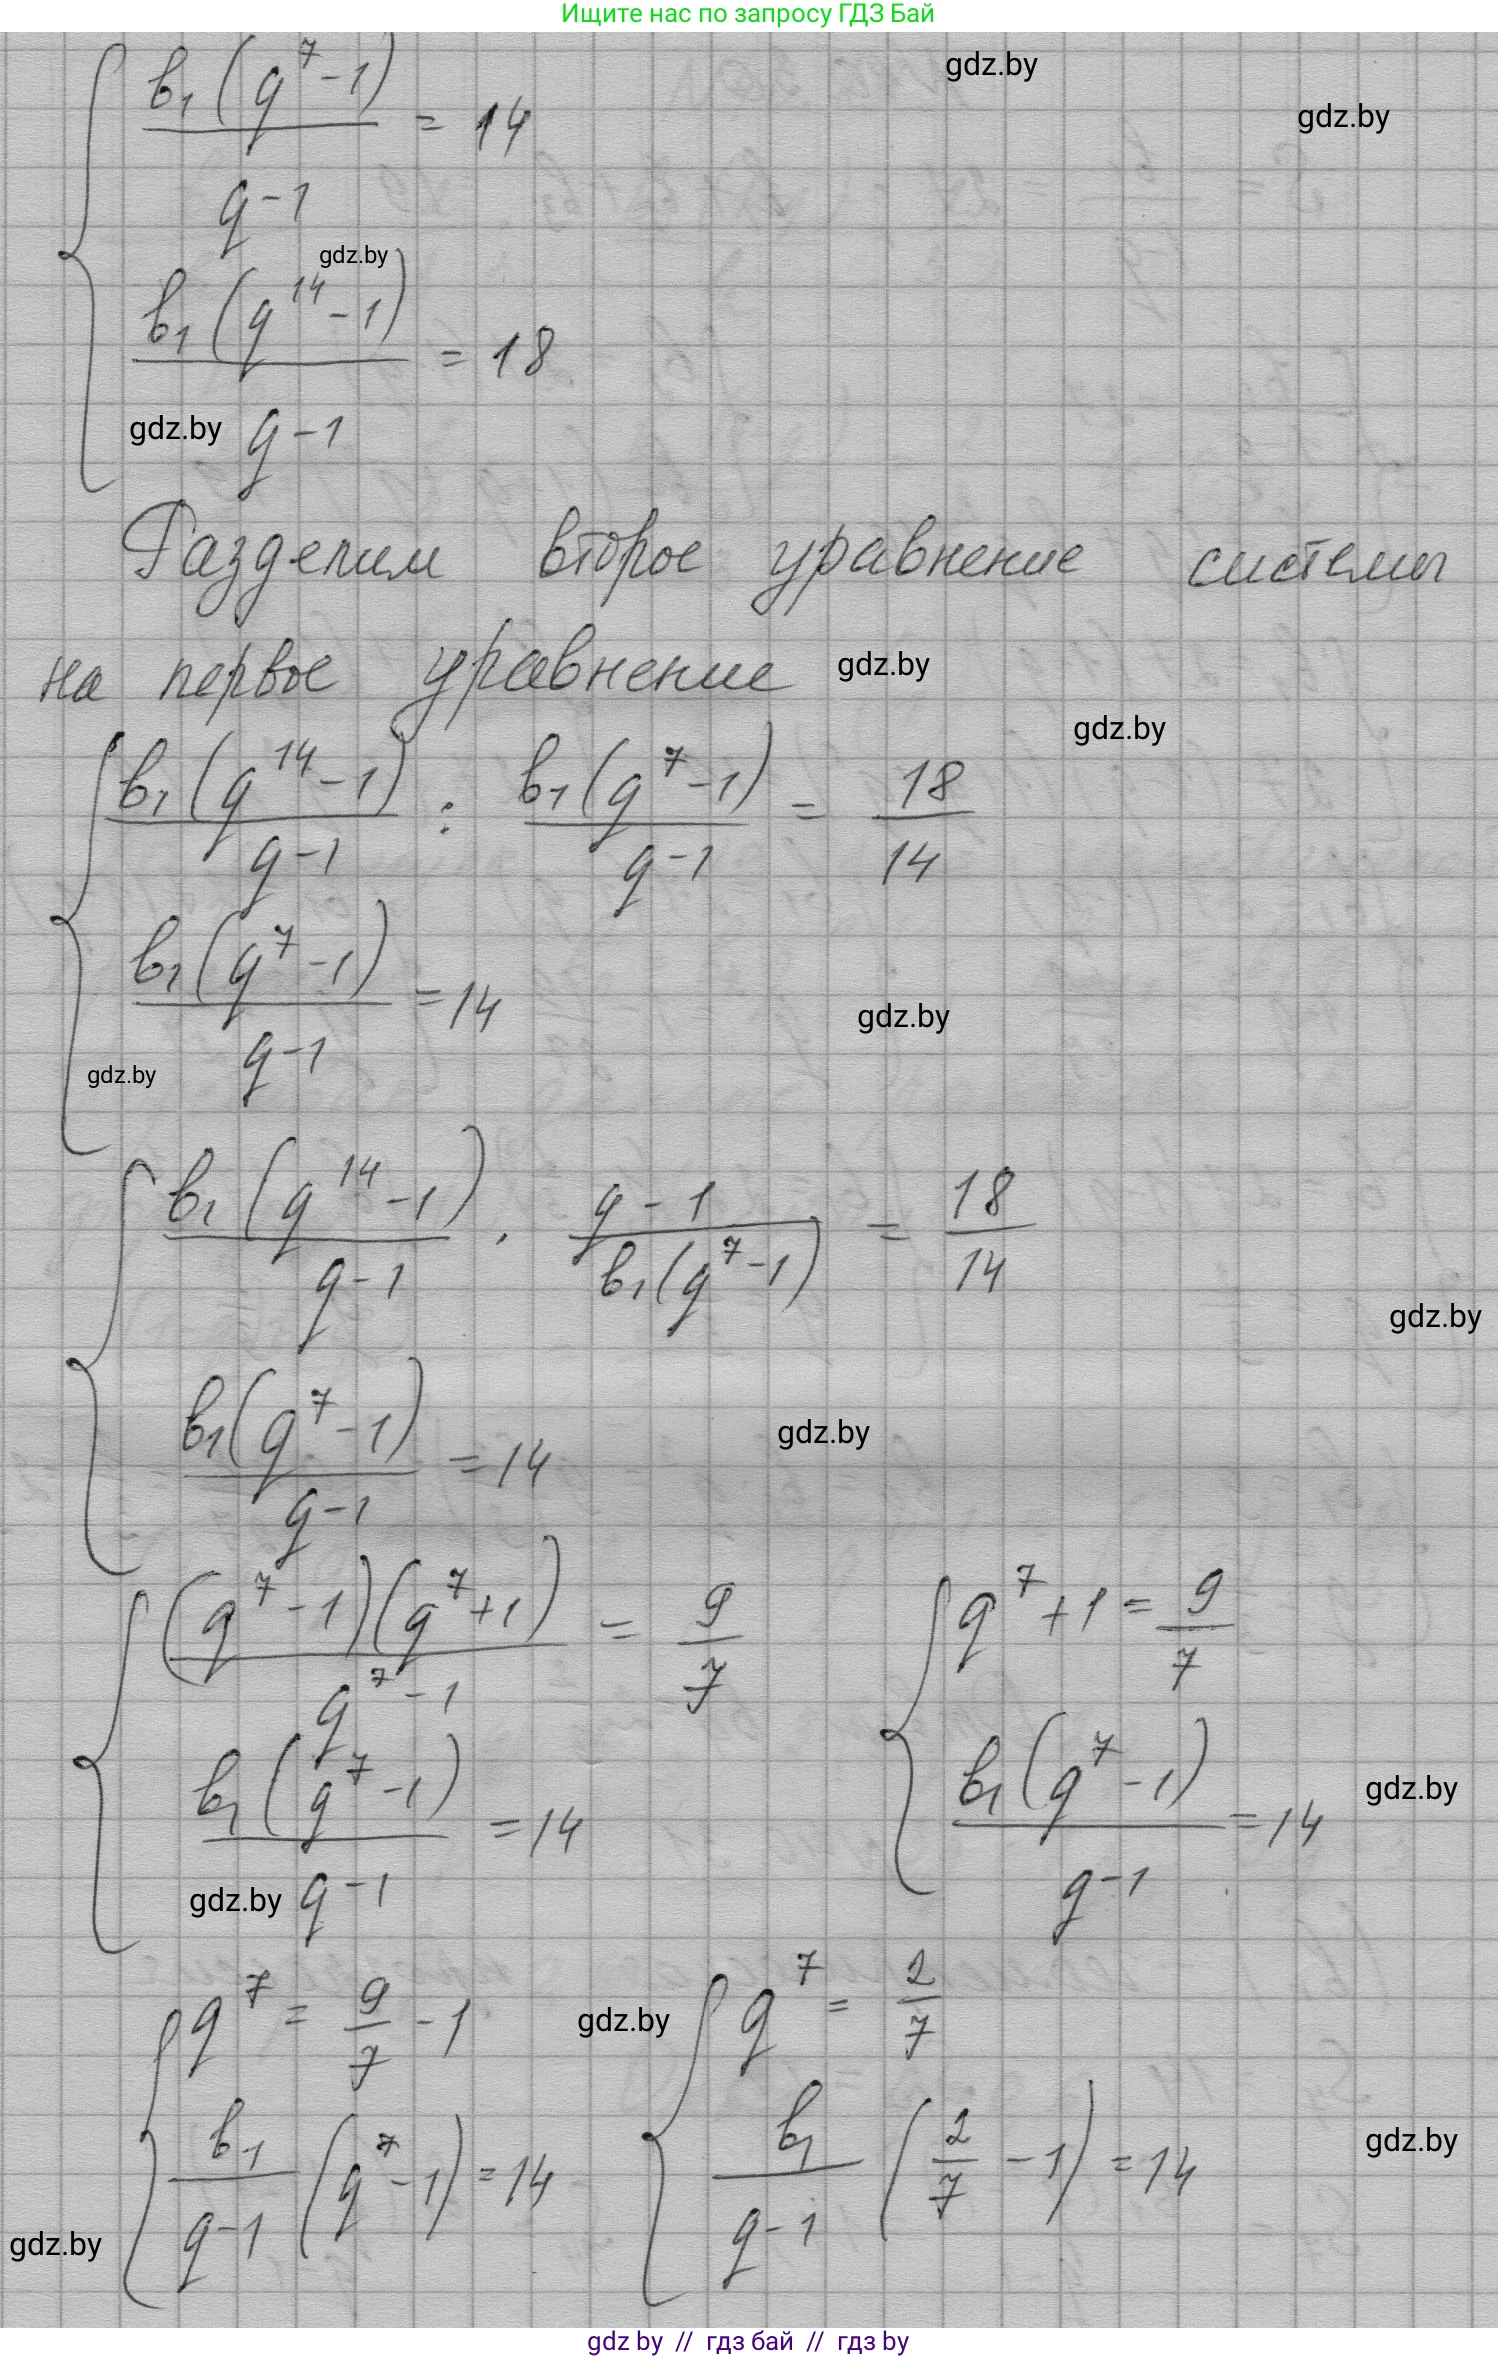 Ищите нас по запросу ГДЗ Бай
gdz.by
gdz.by
{ b₁(q⁷-1)/(q-1) = 14
gdz.by
b₁(q¹⁴-1)/(q-1) = 18
gdz.by
Разделим второе уравнение системы
на первое уравнение gdz.by
gdz.by
{ b₁(q¹⁴-1)/(q-1) : b₁(q⁷-1)/(q-1) = 18/14
b₁(q⁷-1)/(q-1) = 14
gdz.by
gdz.by
{ b₁(q¹⁴-1)/(q-1) · (q-1)/(b₁(q⁷-1)) = 18/14
gdz.by
b₁(q⁷-1)/(q-1) = 14
gdz.by
{ (q⁷-1)(q⁷+1)/(q⁷-1) = 9/7 { q⁷+1 = 9/7
b₁(q⁷-1)/(q-1) = 14 b₁(q⁷-1)/(q-1) = 14
gdz.by
gdz.by
{ q⁷ = 9/7 - 1 gdz.by { q⁷ = 2/7
b₁/(q-1) (q⁷-1) = 14 b₁/(q-1) (2/7 - 1) = 14
gdz.by
gdz.by
gdz by // гдз бай // гдз by